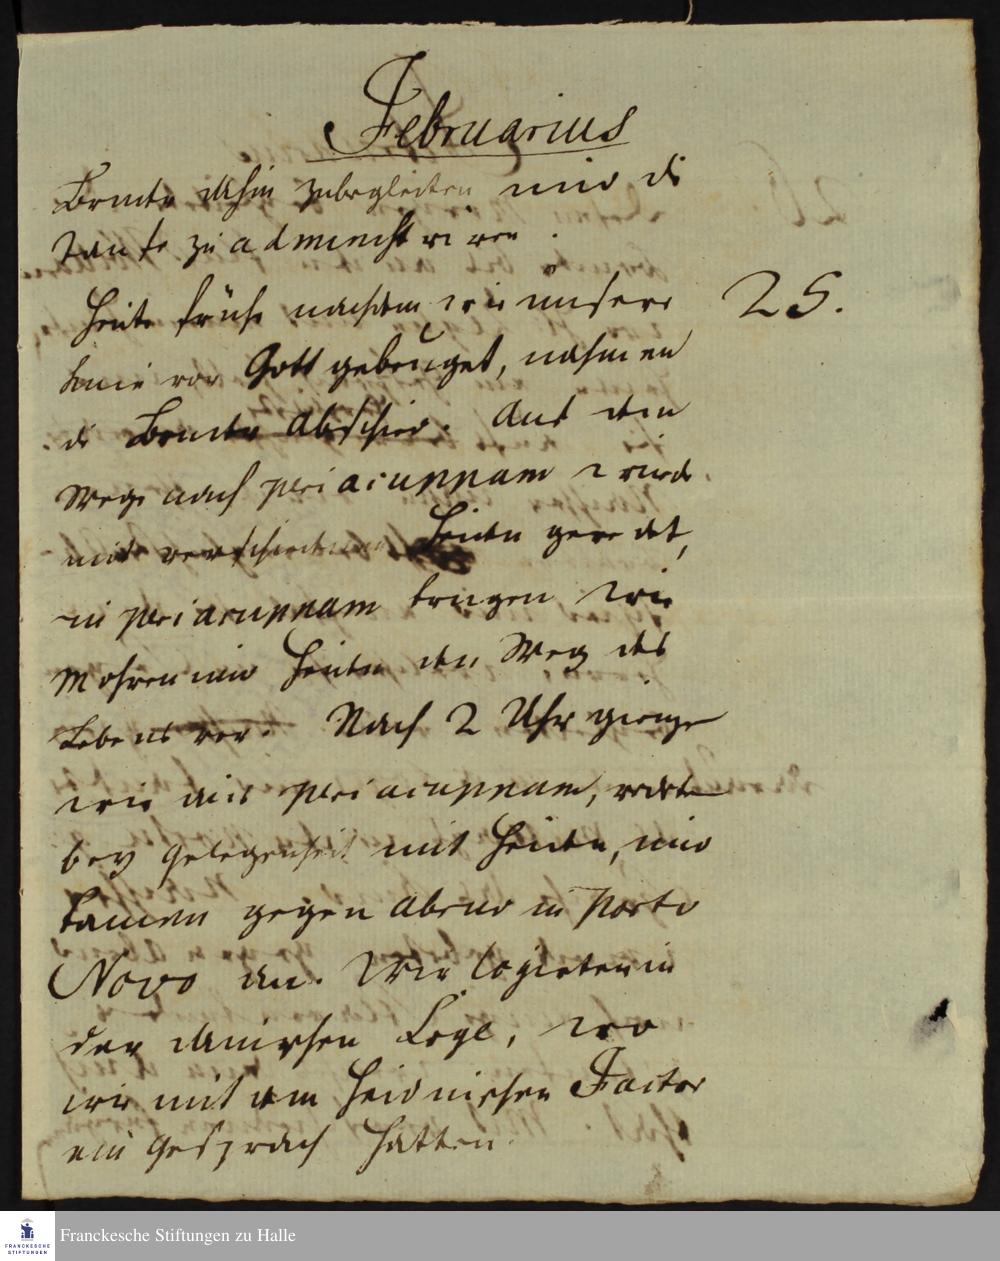 Februarius
Bruder dahin zubegleiten und di
Taufe zu administriren.
Heute frühe nachdem wir unsere 25.
Knie vor Gott gebeuget, nahmen
di Bruder Abschied. Auf dem
Wege nach Periacuppam wurde
mit verschiedenen Heiden geredet,
in Periacuppam trugen wir
Mohren und Heiden den Weg des
Lebens vor. Nach 2 Uhr giengen
wir aus Periacuppam, redeten
bey Gelegenheit mit Heiden, und
kamen gegen Abend in Porto
Novo an. Wir logieten in
der dänischen Loge, wo
wir mit dem heidnischen Factor
ein Gespräch hatten.
Franckesche Stiftungen zu Halle
FRANCKESCHE
STIFTUNGEN